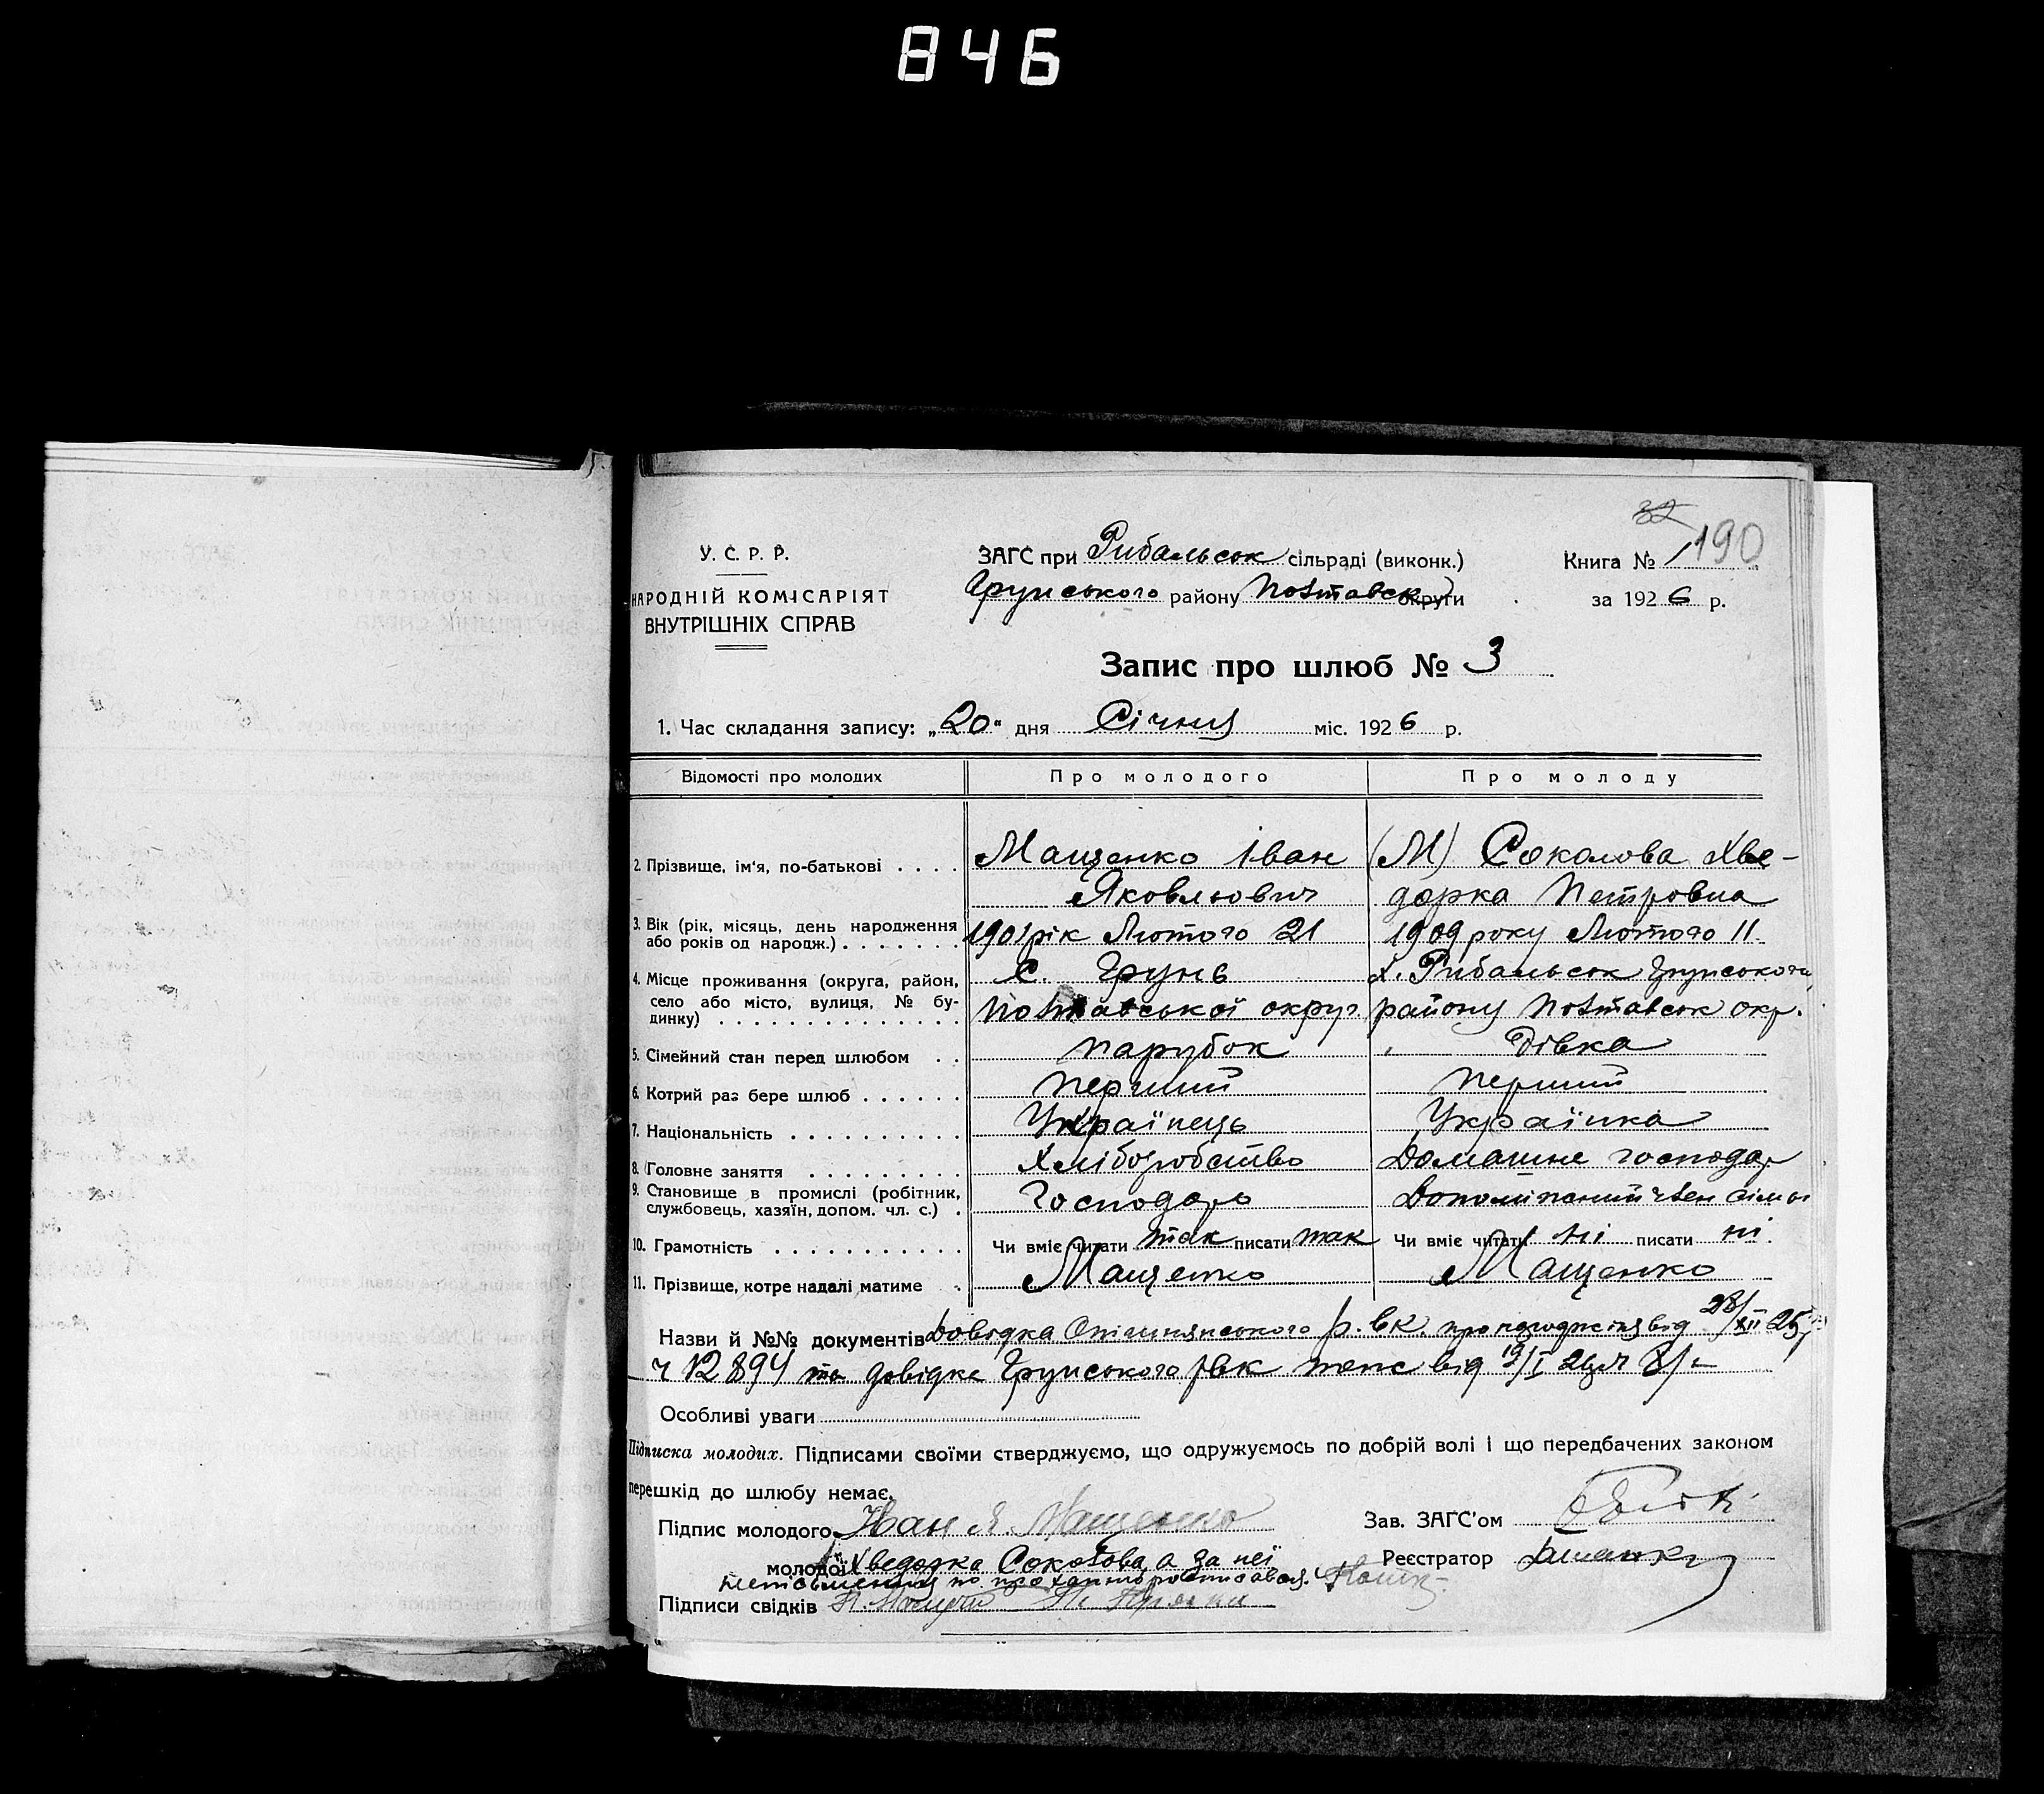 846
32
190
У. С. Р. Р.
НАРОДНІЙ КОМІСАРІЯТ
ВНУТРІШНІХ СПРАВ
ЗАГС при Рибальськ сільраді (виконк.)
Грунського району Полтавськ округи
Книга № 1
за 1926 р.
Запис про шлюб № 3
1. Час складання запису: „20" дня Січня міс. 1926 р.
Відомості про молодих Про молодого Про молоду
2. Прізвище, ім'я, по-батькові . . . . Мащенко Іван (М) Соколова Хве-
Яковльович дорка Петровна
3. Вік (рік, місяць, день народження 1901 рік Лютого 21 1909 року Лютого 11
або років од народж.) . . . . . . .
4. Місце проживання (округа, район, с. Грунь х. Рибальськ Грунського
село або місто, вулиця, № бу- Полтавської округ. району Полтавськ окр.
динку) . . . . . . . . . . . . . .
5. Сімейний стан перед шлюбом . . парубок дівка
6. Котрий раз бере шлюб . . . . . . перший перший
7. Національність . . . . . . . . . . Українець Українка
8. Головне заняття . . . . . . . . Хліборобство Домашне господар
9. Становище в промислі (робітник, Господарь Допоміжний член сімьі
службовець, хазяїн, допом. чл. с.) .
10. Грамотність . . . . . . . . . . . Чи вміє читати так писати так Чи вміє читати ні писати ні.
11. Прізвище, котре надалі матиме . Мащенко Мащенко
Назви й №№ документів Довідка Опішнянського р.вк. про від 28/XII 25р
ч 12894 та довідка Грунського рвк від 19/I
Особливі уваги
Підписка молодих. Підписами своїми стверджуємо, що одружуємось по добрій волі і що передбачених законом
перешкід до шлюбу немає.
Підпис молодого Иван Я. Мащенко Зав. ЗАГС'ом
молодої Хведорка Соколова а за неї Реєстратор
неписьменния по проханню росписався.
Підписи свідків